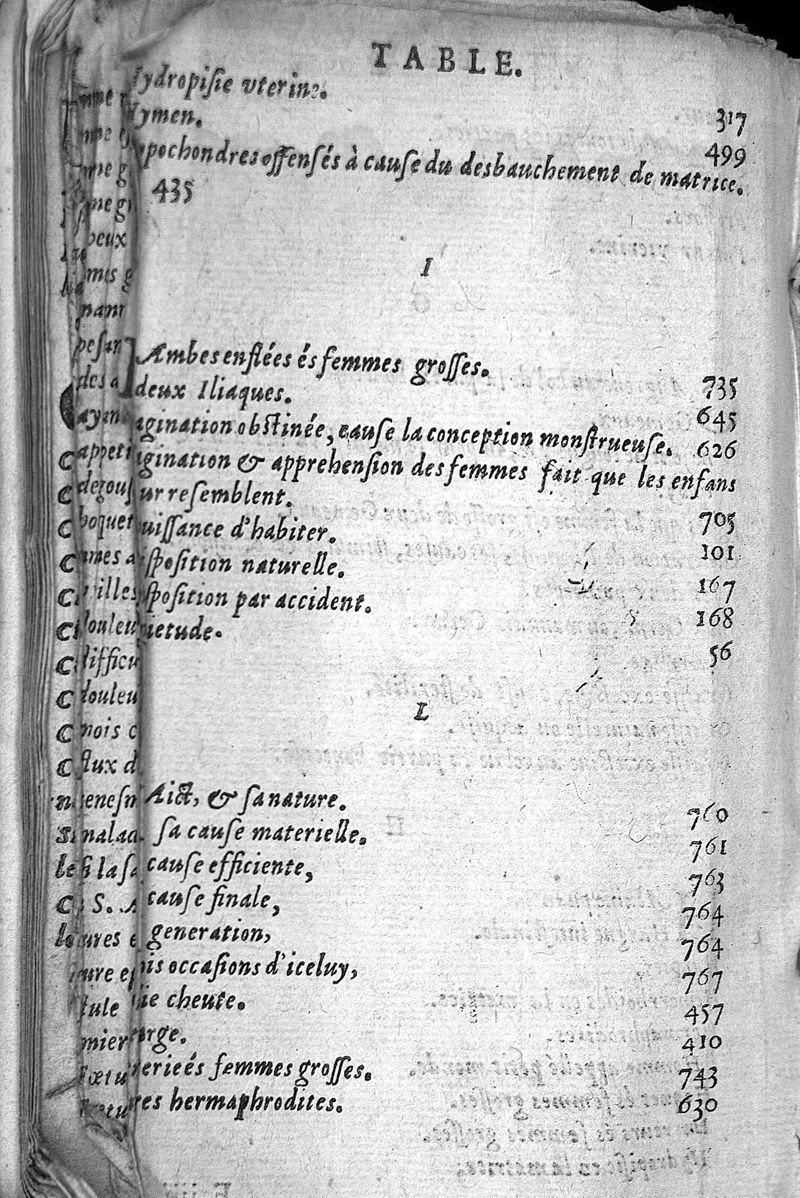 TABLE.
ydropisie vterine. 317
ymen. 499
pochondres offensés à cause du desbauchement de matrice.
435
I
Ambes enflées és femmes grosses. 735
deux Iliaques. 645
agination obstinée, cause la conception monstrueuse. 626
igination & apprehension des femmes fait que les enfans
ur resemblent. 705
uissance d'habiter. 101
sposition naturelle. 167
sposition par accident. 168
ietude. 56
L
Aict, & sa nature. 760
sa cause materielle. 761
cause efficiente, 763
cause finale, 764
generation, 764
is occasions d'iceluy, 767
ie cheute. 457
rge. 410
erie és femmes grosses. 743
res hermaphrodites. 630